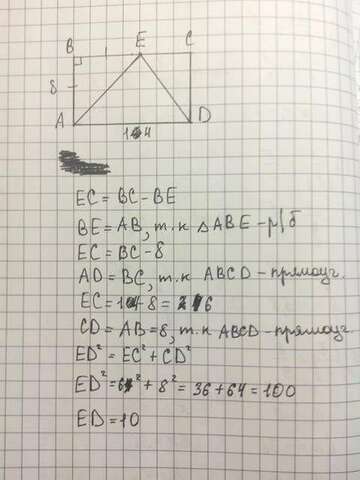 B E C
8
A D
14
EC = BC - BE
BE = AB, т.к △ABE - р/б
EC = BC - 8
AD = BC, т.к ABCD - прямоуг.
EC = 14 - 8 = 6
CD = AB = 8, т.к ABCD - прямоуг.
ED² = EC² + CD²
ED² = 6² + 8² = 36 + 64 = 100
ED = 10